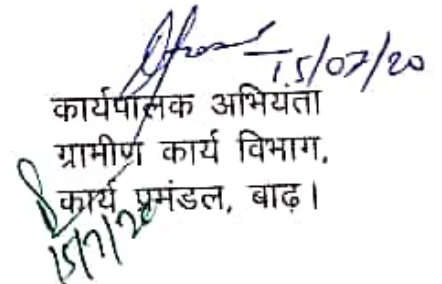 15/07/20
कार्यपालक अभियंता
ग्रामीण कार्य विभाग,
कार्य प्रमंडल, बाढ़।
15/7/20